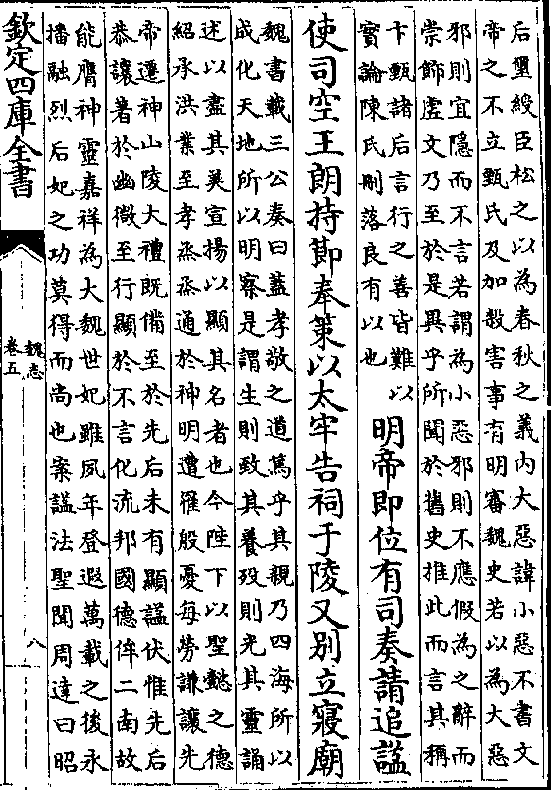 后璽綬臣松之以為春秋之義內大惡諱小惡不書文
帝之不立甄氏及加殺害事有明審魏史若以為大惡
邪則宜隱而不言若謂為小惡邪則不應假為之辭而
崇飾虛文乃至於是異乎所聞於舊史推此而言其稱
卞甄諸后言行之善皆難以
實論陳氏刪落良有以也
明帝即位有司奏請追諡
使司空王朗持節奉策以太牢告祠于陵又別立寢廟
魏書載三公奏曰蓋孝敬之道篤乎其親乃四海所以
成化天地所以明察是謂生則致其養歿則光其靈誦
述以盡其美宣揚以顯其名者也今陛下以聖懿之德
紹承洪業至孝烝烝通於神明遭罹殷憂每勞謙讓先
帝遷神山陵大禮既備至於先后未有顯諡伏惟先后
恭讓著於幽微至行顯於不言化流邦國德侔二南故
能膺神靈嘉祥為大魏世妃雖夙年登遐萬載之後永
播融烈后妃之功莫得而尚也案諡法聖聞周達曰昭
欽定四庫全書
魏志
卷五
八